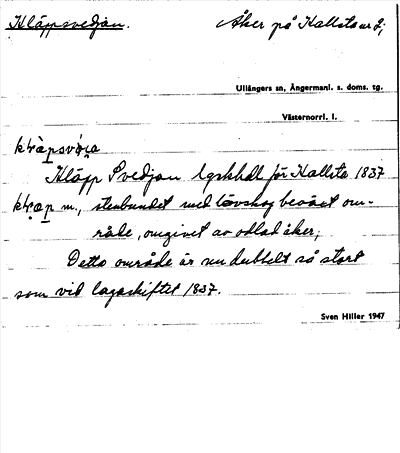 Kläppsvedjan. Åker på Kallsta nr 2;
Ullångers sn, Ångermanl. s. doms. tg.
Västernorrl. l.
Kläpp Svedjan lgskhdl för Kallsta 1837
m., stenbundet med lövskog beväxt om-
råde, omgivet av odlad åker,
Detta område är nu dubbelt så stort
som vid lagaskiftet 1837.
Sven Hiller 1947